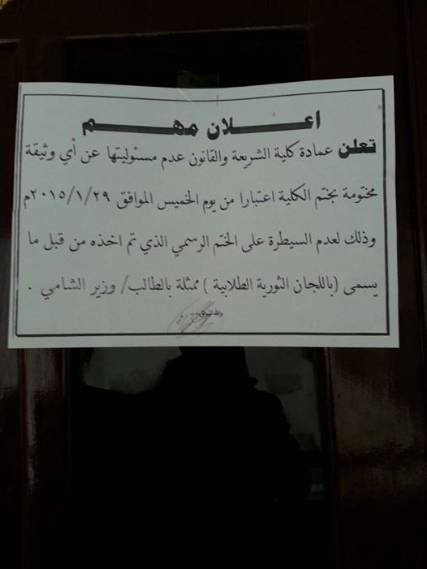 اعـــلان مهـــم
تعلن عمادة كلية الشريعة والقانون عدم مسئوليتها عن أي وثيقة
مختومة بختم الكلية اعتبارا من يوم الخميس الموافق ٢٠١٥/١/٢٩م
وذلك لعدم السيطرة على الختم الرسمي الذي تم اخذه من قبل ما
يسمى (باللجان الثورية الطلابية ) ممثلة بالطالب/ وزير الشامي .